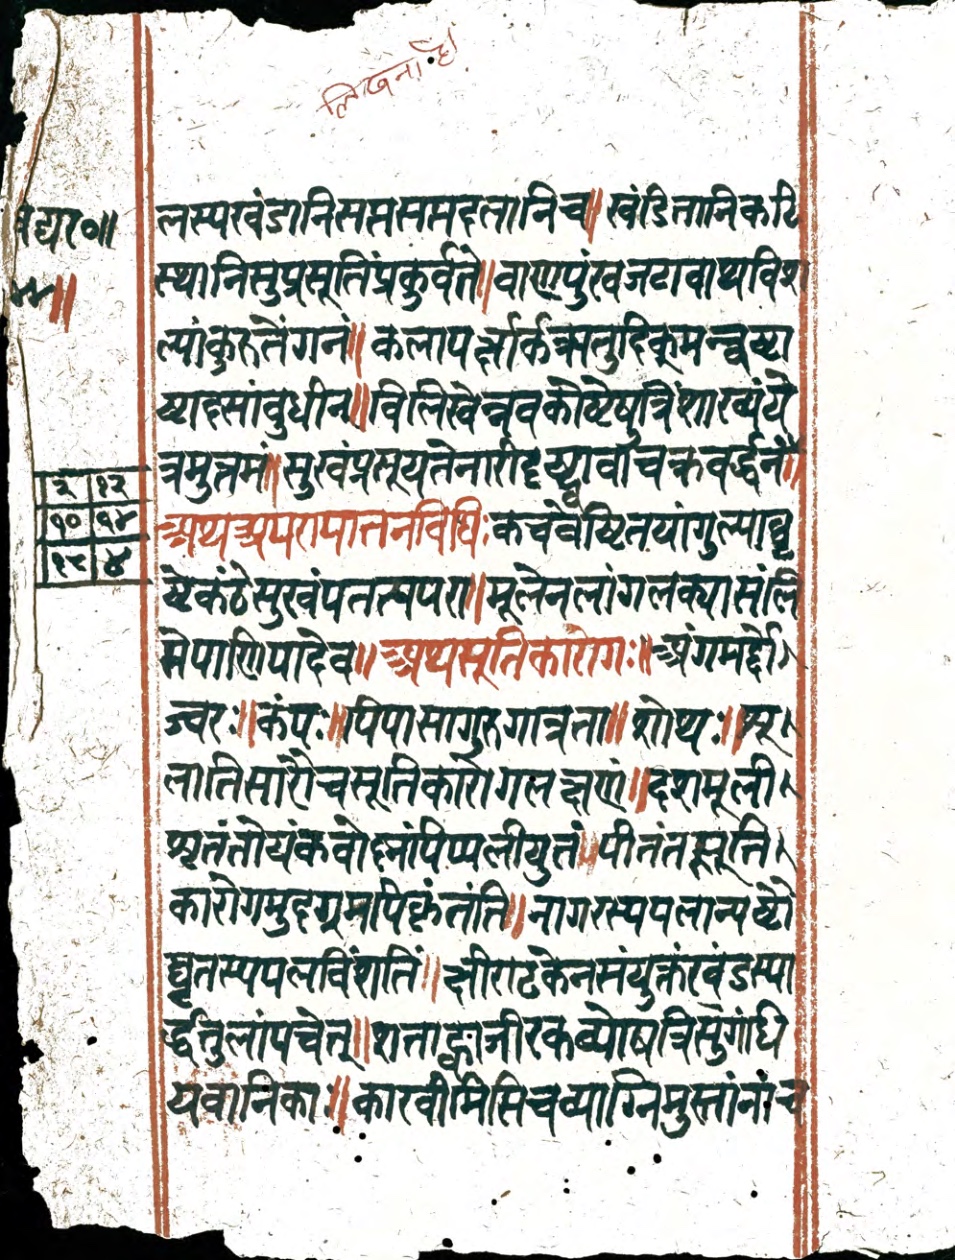 लिखना है
वैद्यर॰॥
लस्यखंडानिसप्तसमहतानिच॥खंडितानिकटि
स्थानिसुप्रसूतिंप्रकुर्वते॥वाणपुंखजटावाथविश
ल्यांकुरुतेंगनं॥कलापर्क्षार्कऋतुदिक्मन्वष्टा
ष्टाहसांवुधीन्॥विलिखेन्नवकोष्टेषुत्रिंशाख्यंये
त्रमुत्तमं॥सुखंप्रसूयतेनारीदृष्ट्वावाचक्रवर्द्धनं॥
२ १२
१० १४
१८ ४
अथअपरापातनविधिःकचवेष्टितयांगुल्याघृ
ष्टेकंठेसुखंपतत्यपरा॥मूलेनलांगलक्यासंलि
मेपाणिपादेव॥अथसूतिकारोगः॥अंगमर्द्दो
ज्वरः॥कंपः॥पिपासागुरुगात्रता॥शोथः॥शू
लातिसारौचसूतिकारोगलक्षणं॥दशमूली
शृतंतोयंकवोष्नंपिप्पलीयुतं॥पीतंतत्सूति
कारोगमुदग्रमपिकृंतंति॥नागरस्यपलान्यष्टौ
घृतस्यपलविंशतिं॥क्षीराढकेनसंयुक्तंखंडस्या
र्द्धतुलांपचेत्॥शताह्वाजीरकव्योषत्रिसुगंधि
यवानिका॥कारवीमिसिचव्याग्निमुस्तांनांच